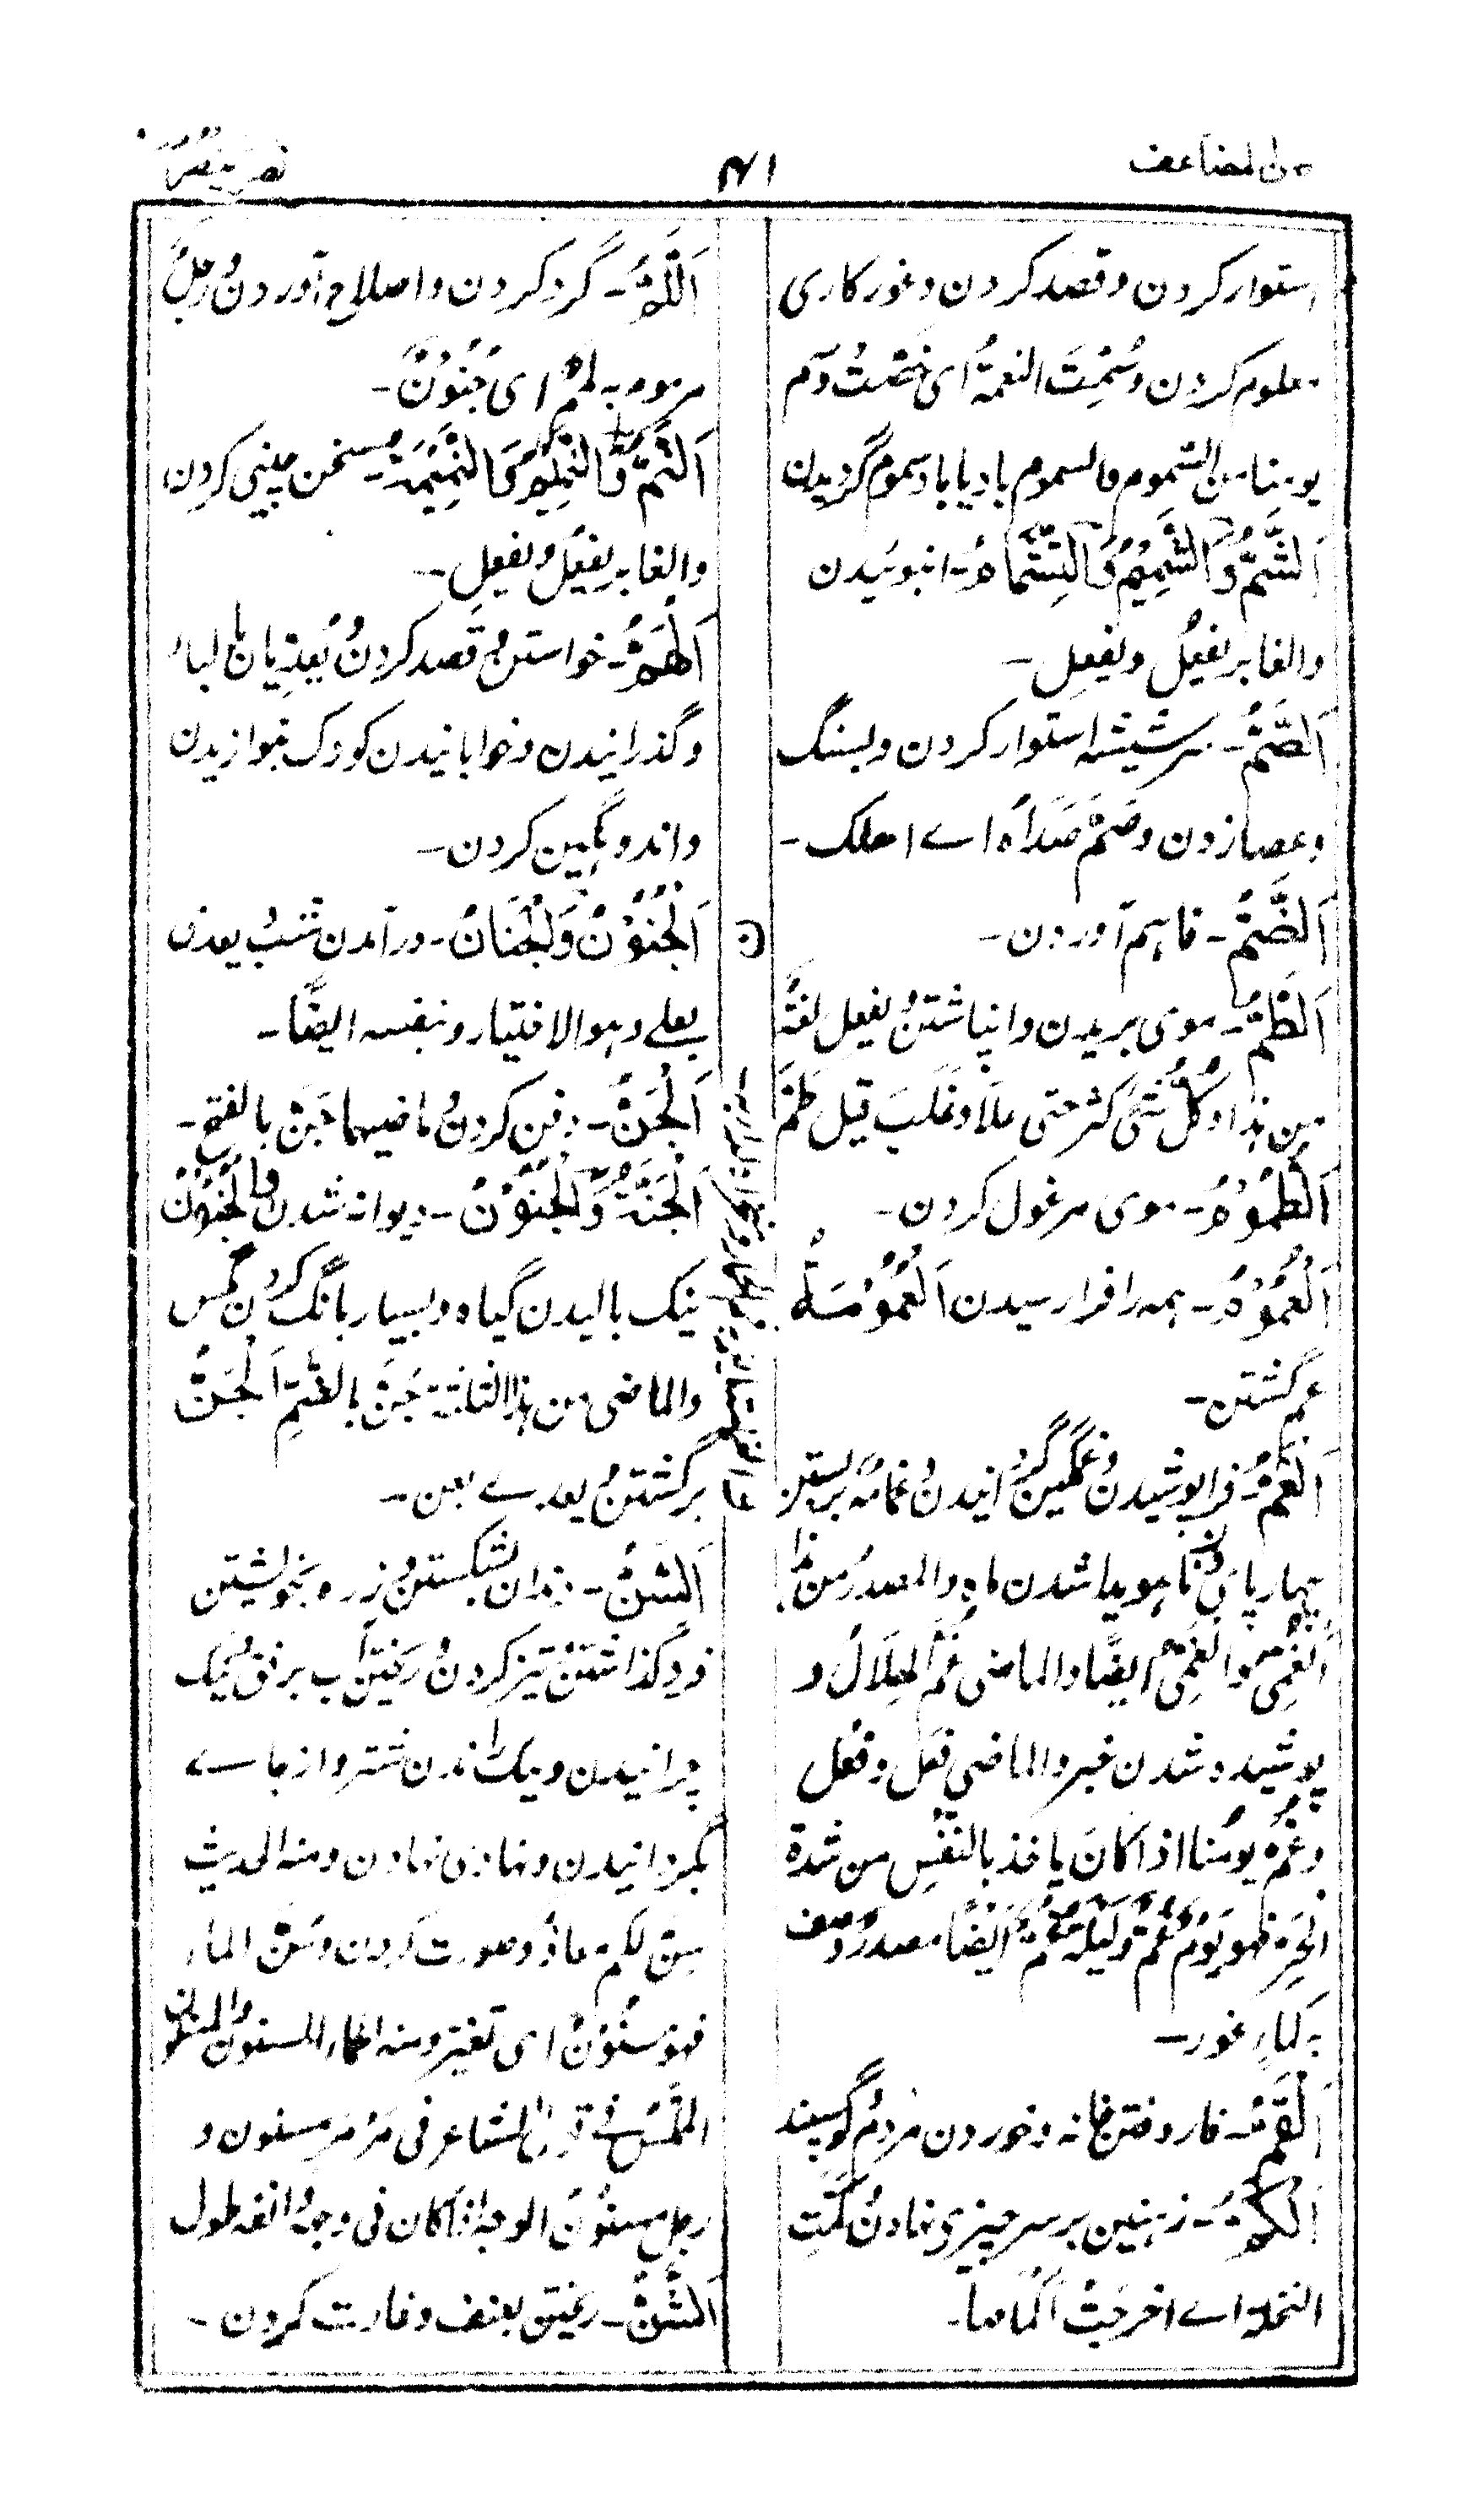 من المضاعف
۴۱
نصر ینصر
استوار کردن و قصد کردن و غور کاری
معلوم کردن وسُمَّتِ النعمة ای خصّت وسُمّ
یومنا من السموم والسموم باد یا باد سموم گزیدن
اَلشَّمُّ وَالشَّمِیْمُ وَالتِّشْمَامُ - انبوئیدن
والغابر یفعُل ویفعِل -
اَلصَّمُّ - سر شیشه استوار کردن و بسنگ
و عصا زدن وصَمّ صداہ اے اهلک -
اَلضَّمُّ - فاہم آوردن -
اَلطَّمُّ - موی بریدن و انباشتن یفعِل لغة
من ہذا وکُلُّ شیٔ کثر حتی علا وغَلَبَ قیل طَمَّ
اَلطُّمُوْمُ - موی مرغول کردن -
اَلْعُمُوْمُ - ہمہ را فرا رسیدن اَلْعُمُوْمَةُ
عم گشتن -
اَلْغَمُّ - فرا پوشیدن و غمگین گردانیدن و غمامه بر بستن
چهارپای و ناہویدا شدن ماہ والمصدر من ہذا
اَلْغَمّٰی والغُمّٰی ایضًا والماضی غُمَّ الهِلَالُ و
پوشیدہ شدن خبر والماضی فعل وفُعل
وغمّ یومنا اذا کانَ یاخذ بالنفَس من شدة
الحَرِّ فهو یَوْمٌ غَمٌّ ولَیْلَةٌ غَمٌّ اَیْضًا مصدر وصف
به کماءٍ غور -
اَلْقَمُّ - فا روفتن خانه و خوردن مردم و گوسپند
اَلْکَمُّ - زنبین بر سر چیزی نهادن وکَمَّتِ
النخلة اے اخرجَتْ اَکْمامها -
اَللَّمُّ - گرد کردن و اصلاح آوردن ورجلٌ
ملموم به لَمَمٌ ای جُنُوْنٌ -
اَلنَّمُّ وَالنَّمِیْمُ وَالنَّمِیْمَةُ - سخن چینی کردن
والغابر یفعُل ویفعِل -
اَلْهَمُّ - خواستن و قصد کردن یُعدّیان بالباء
و گدازانیدن و خوابانیدن کودک بنوازیدن
و اندوہگین کردن -
ن
اَلْجُنُوْنُ وَالْجَنَانُ - در آمدن شب یعدّی
بعلے وہو الاختیار وبنفسه ایضًا -
اَلْجَنُّ - دفن کردن ماضیهما جَنّ بالفتح -
اَلْجِنَّةُ وَالْجُنُوْنُ - دیوانه شدن والْجُنُوْنُ
نیک بالیدن گیاہ و بسیار بانگ کردن مگس
والماضی من ہذا الثلثة جُنَّ بالضَّمِ اَلْجَنُّ
برگشتن یعدے بعن -
اَلسَّنُّ - دندان بشکستن و زرہ بخویشتن
فرو گذاشتن و تیز کردن و ریختن آب برفق و نیک
چرانیدن و نیک راندن شتر و از جاے
بگردانیدن و نهادی نهادن ومنه الحدیث
سنّ لکم معاذ و صورت کردن وسُنّ الماء
فهو مسنُوْنٌ ای تغیّر ومنه الحماء المسنون والمسنون
المملَّس فی قول الشاعر فی مَرْمَرٍ مسنون و
رجل مسنُوْنُ الوجه اذا کان فی وجهه وانفه طول
اَلشَّنُّ - ریختن بعنف و غارت کردن -